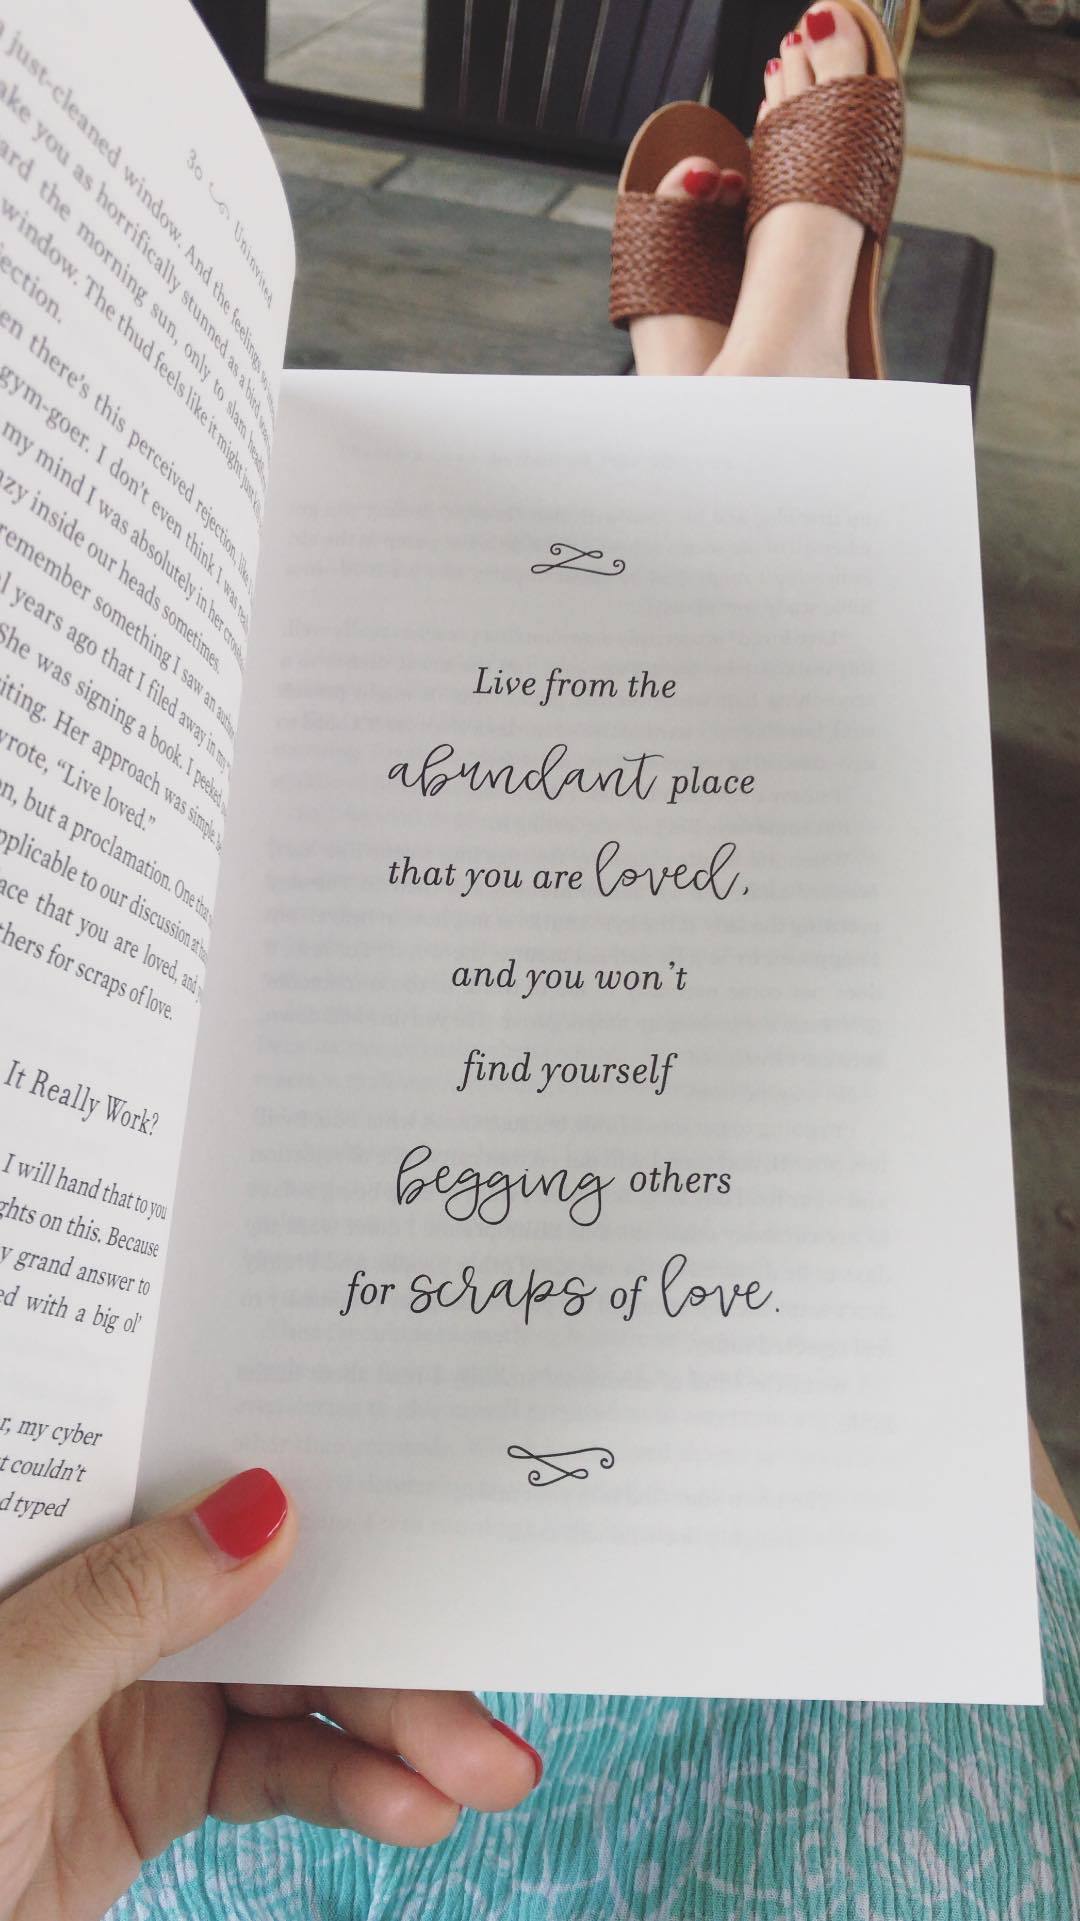 30 Uninvited
just-cleaned window. And the feelings
ake you as horrifically stunned as a bird
ard the morning sun, only to slam
window. The thud feels like it might just
ection.
en there's this perceived rejection, like
gym-goer. I don't even think I was
my mind I was absolutely in her
zy inside our heads sometimes.
remember something I saw an
l years ago that I filed away in my
She was signing a book. I peeked
iting. Her approach was simple,
wrote, “Live loved.”
on, but a proclamation. One that
pplicable to our discussion at
ace that you are loved, and
thers for scraps of love.
It Really Work?
I will hand that to you
ghts on this. Because
y grand answer to
ed with a big ol'
r, my cyber
t couldn't
d typed
Live from the
abundant place
that you are loved,
and you won't
find yourself
begging others
for scraps of love.